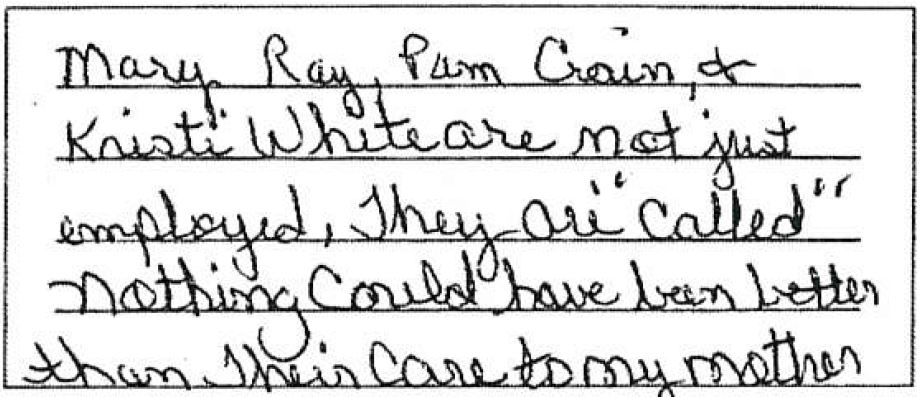 Mary Ray, Pam Crain, &
Kristi White are not just
employed, They are "Called"
Nothing Could have been better
than Their Care to my mother